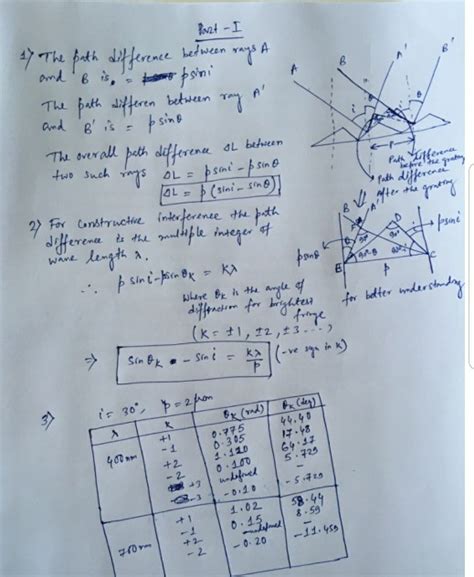 Part - I
1) The path difference between rays A
and B is = p sin i
The path differen between ray A'
and B' is = p sinθ
The overall path difference ΔL between
two such rays ΔL = p sin i - p sinθ
ΔL = p (sin i - sinθ)
A
B
A'
B'
i
θ
P
Path difference
before the grating
Path difference
After the grating
2) For constructive interference the path
difference is the multiple integer of
wave length λ.
∴ p sin i - p sin θk = kλ
where θk is the angle of
diffraction for brightest
fringe
(k = ±1, ±2, ±3 ...,
⇒ sin θk - sin i = kλ/p (-ve sgn in k)
B
A'
D
p sin i
p sinθ
E
C
p
for better understanding
3) i = 30°, p = 2 μm
λ k θk (rad) θk (deg)
400nm +1 0.775 44.40
-1 0.305 17.48
+2 1.120 64.17
-2 0.100 5.729
+3 undefined -
-3 -0.10 -5.729
700nm +1 1.02 58.44
-1 0.15 8.59
+2 undefined -
-2 -0.20 -11.459